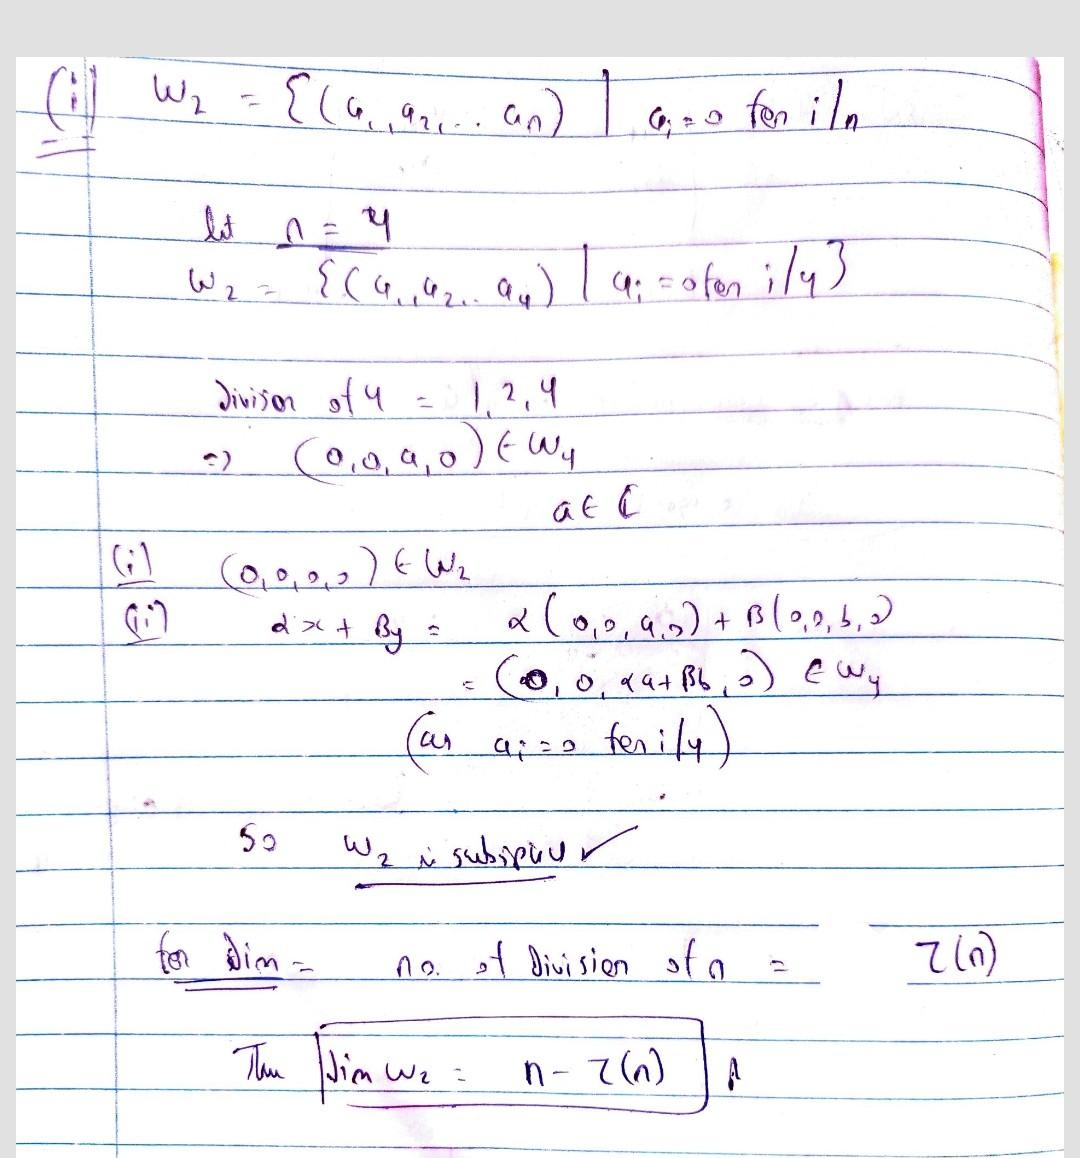 (i) W₂ = {(a₁, a₂, ... aₙ) | aᵢ = 0 for i/n
let n = 4
W₂ = {(a₁, a₂, .. a₄) | aᵢ = 0 for i/4}
Divisor of 4 = 1, 2, 4
=> (0, 0, a, 0) ∈ W₄
a ∈ ℂ
(i) (0, 0, 0, 0) ∈ W₂
(ii) αx + βy = α(0, 0, a, 0) + β(0, 0, b, 0)
= (0, 0, αa + βb, 0) ∈ W₄
(as aᵢ = 0 for i/4)
So W₂ is subspace ✓
for Dim = no. of Division of n = τ(n)
Then dim W₂ = n - τ(n)